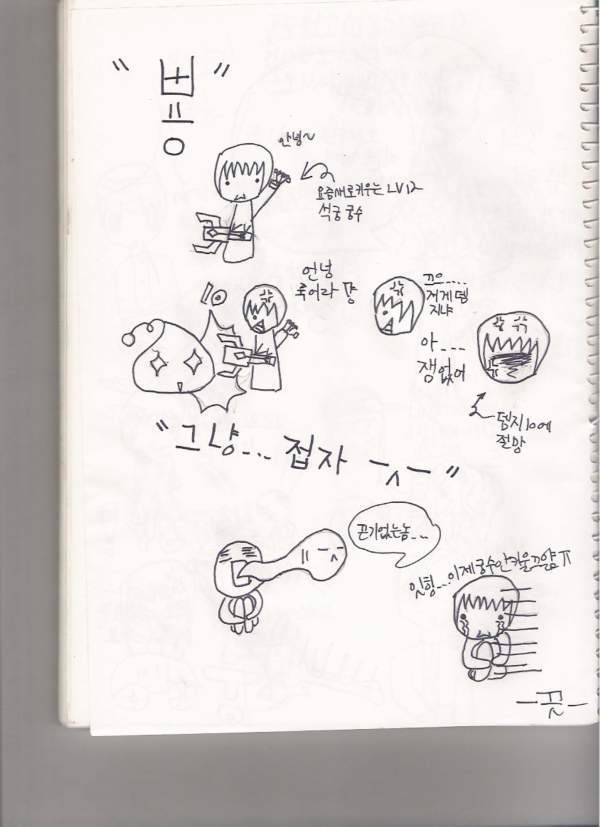 " 봉 "
안녕~
요즘새로키우는 LV12
석궁 궁수
언넝
죽어라 퍙
10
끄으....
저게뎀
지냐
아....
잼없어
뎀지10에
절망
"그냥... 접자 ㅡㅅㅡ"
끈기없는놈...
잇힝...이제궁수안키울끄얌 ㅠ
-끝-